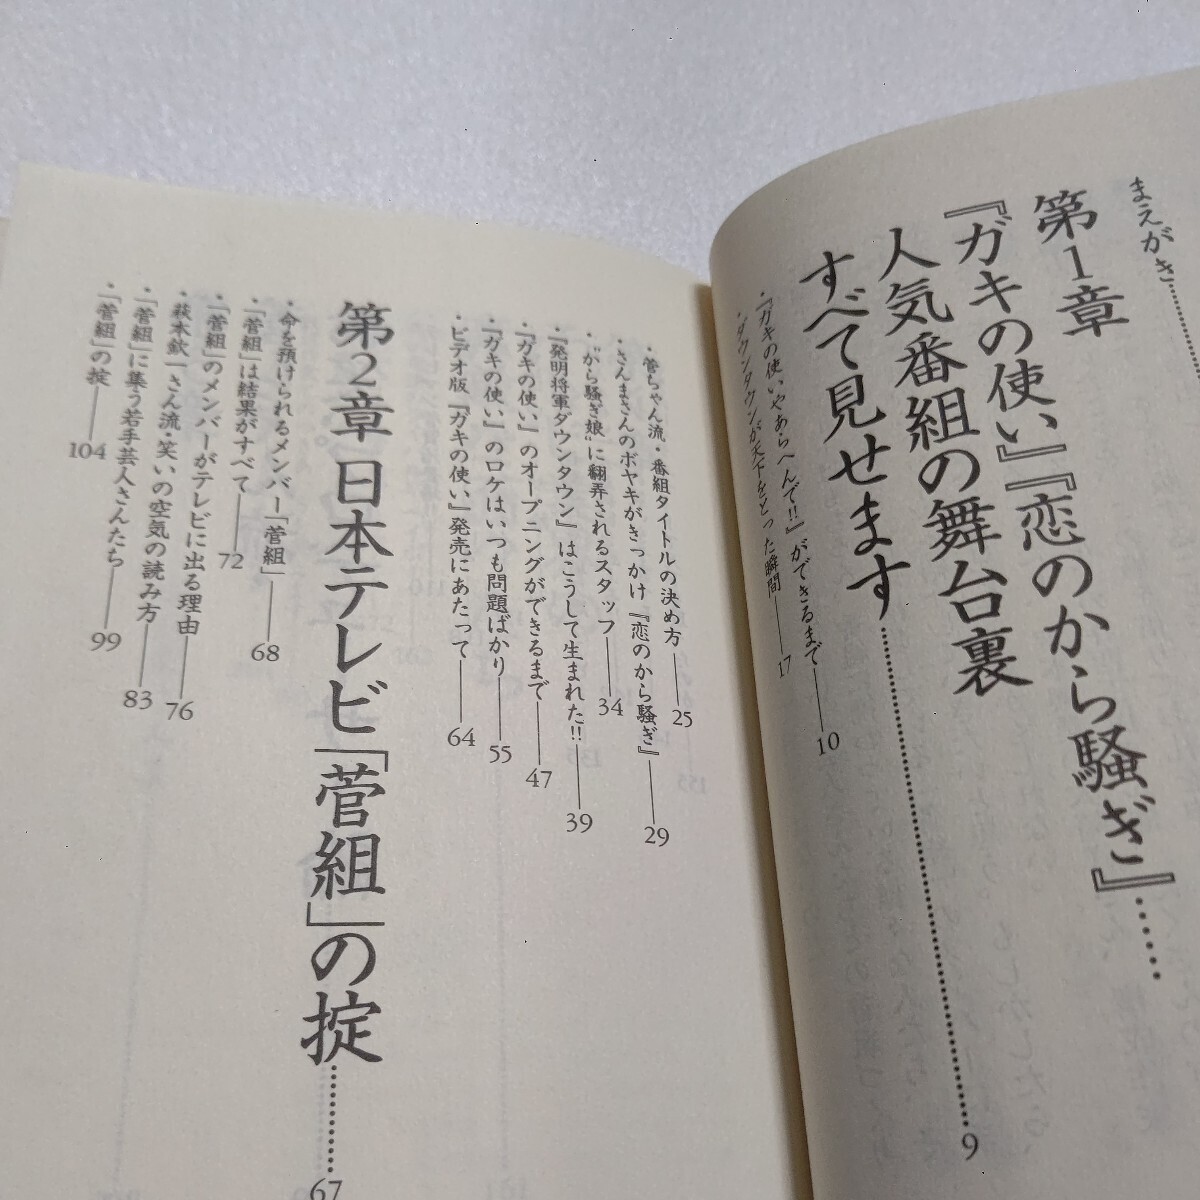 まえがき
第1章
『ガキの使い』『恋のから騒ぎ』……
人気番組の舞台裏
すべて見せます……9
・『ガキの使いやあらへんで!!』ができるまで——10
・ダウンタウンが天下をとった瞬間——17
・菅ちゃん流・番組タイトルの決め方——25
・さんまさんのボヤキがきっかけ『恋のから騒ぎ』——29
・“から騒ぎ娘”に翻弄されるスタッフ——34
・『発明将軍ダウンタウン』はこうして生まれた!!——39
・『ガキの使い』のオープニングができるまで——47
・『ガキの使い』のロケはいつも問題ばかり——55
・ビデオ版『ガキの使い』発売にあたって——64
第2章 日本テレビ「菅組」の掟……67
・命を預けられるメンバー「菅組」——68
・「菅組」は結果がすべて——72
・「菅組」のメンバーがテレビに出る理由——76
・萩本欽一さん流・笑いの空気の読み方——83
・「菅組」に集う若手芸人さんたち——99
・「菅組」の掟——104